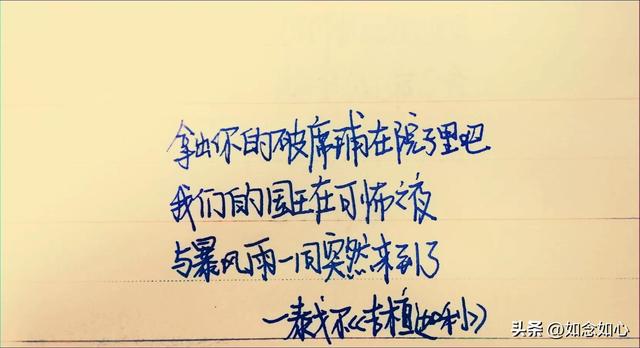 拿出你的破席铺在院子里吧
我们的国王在可怖之夜
与暴风雨一同突然来到了
一泰戈尔《吉檀迦利》
头条 @如念如心